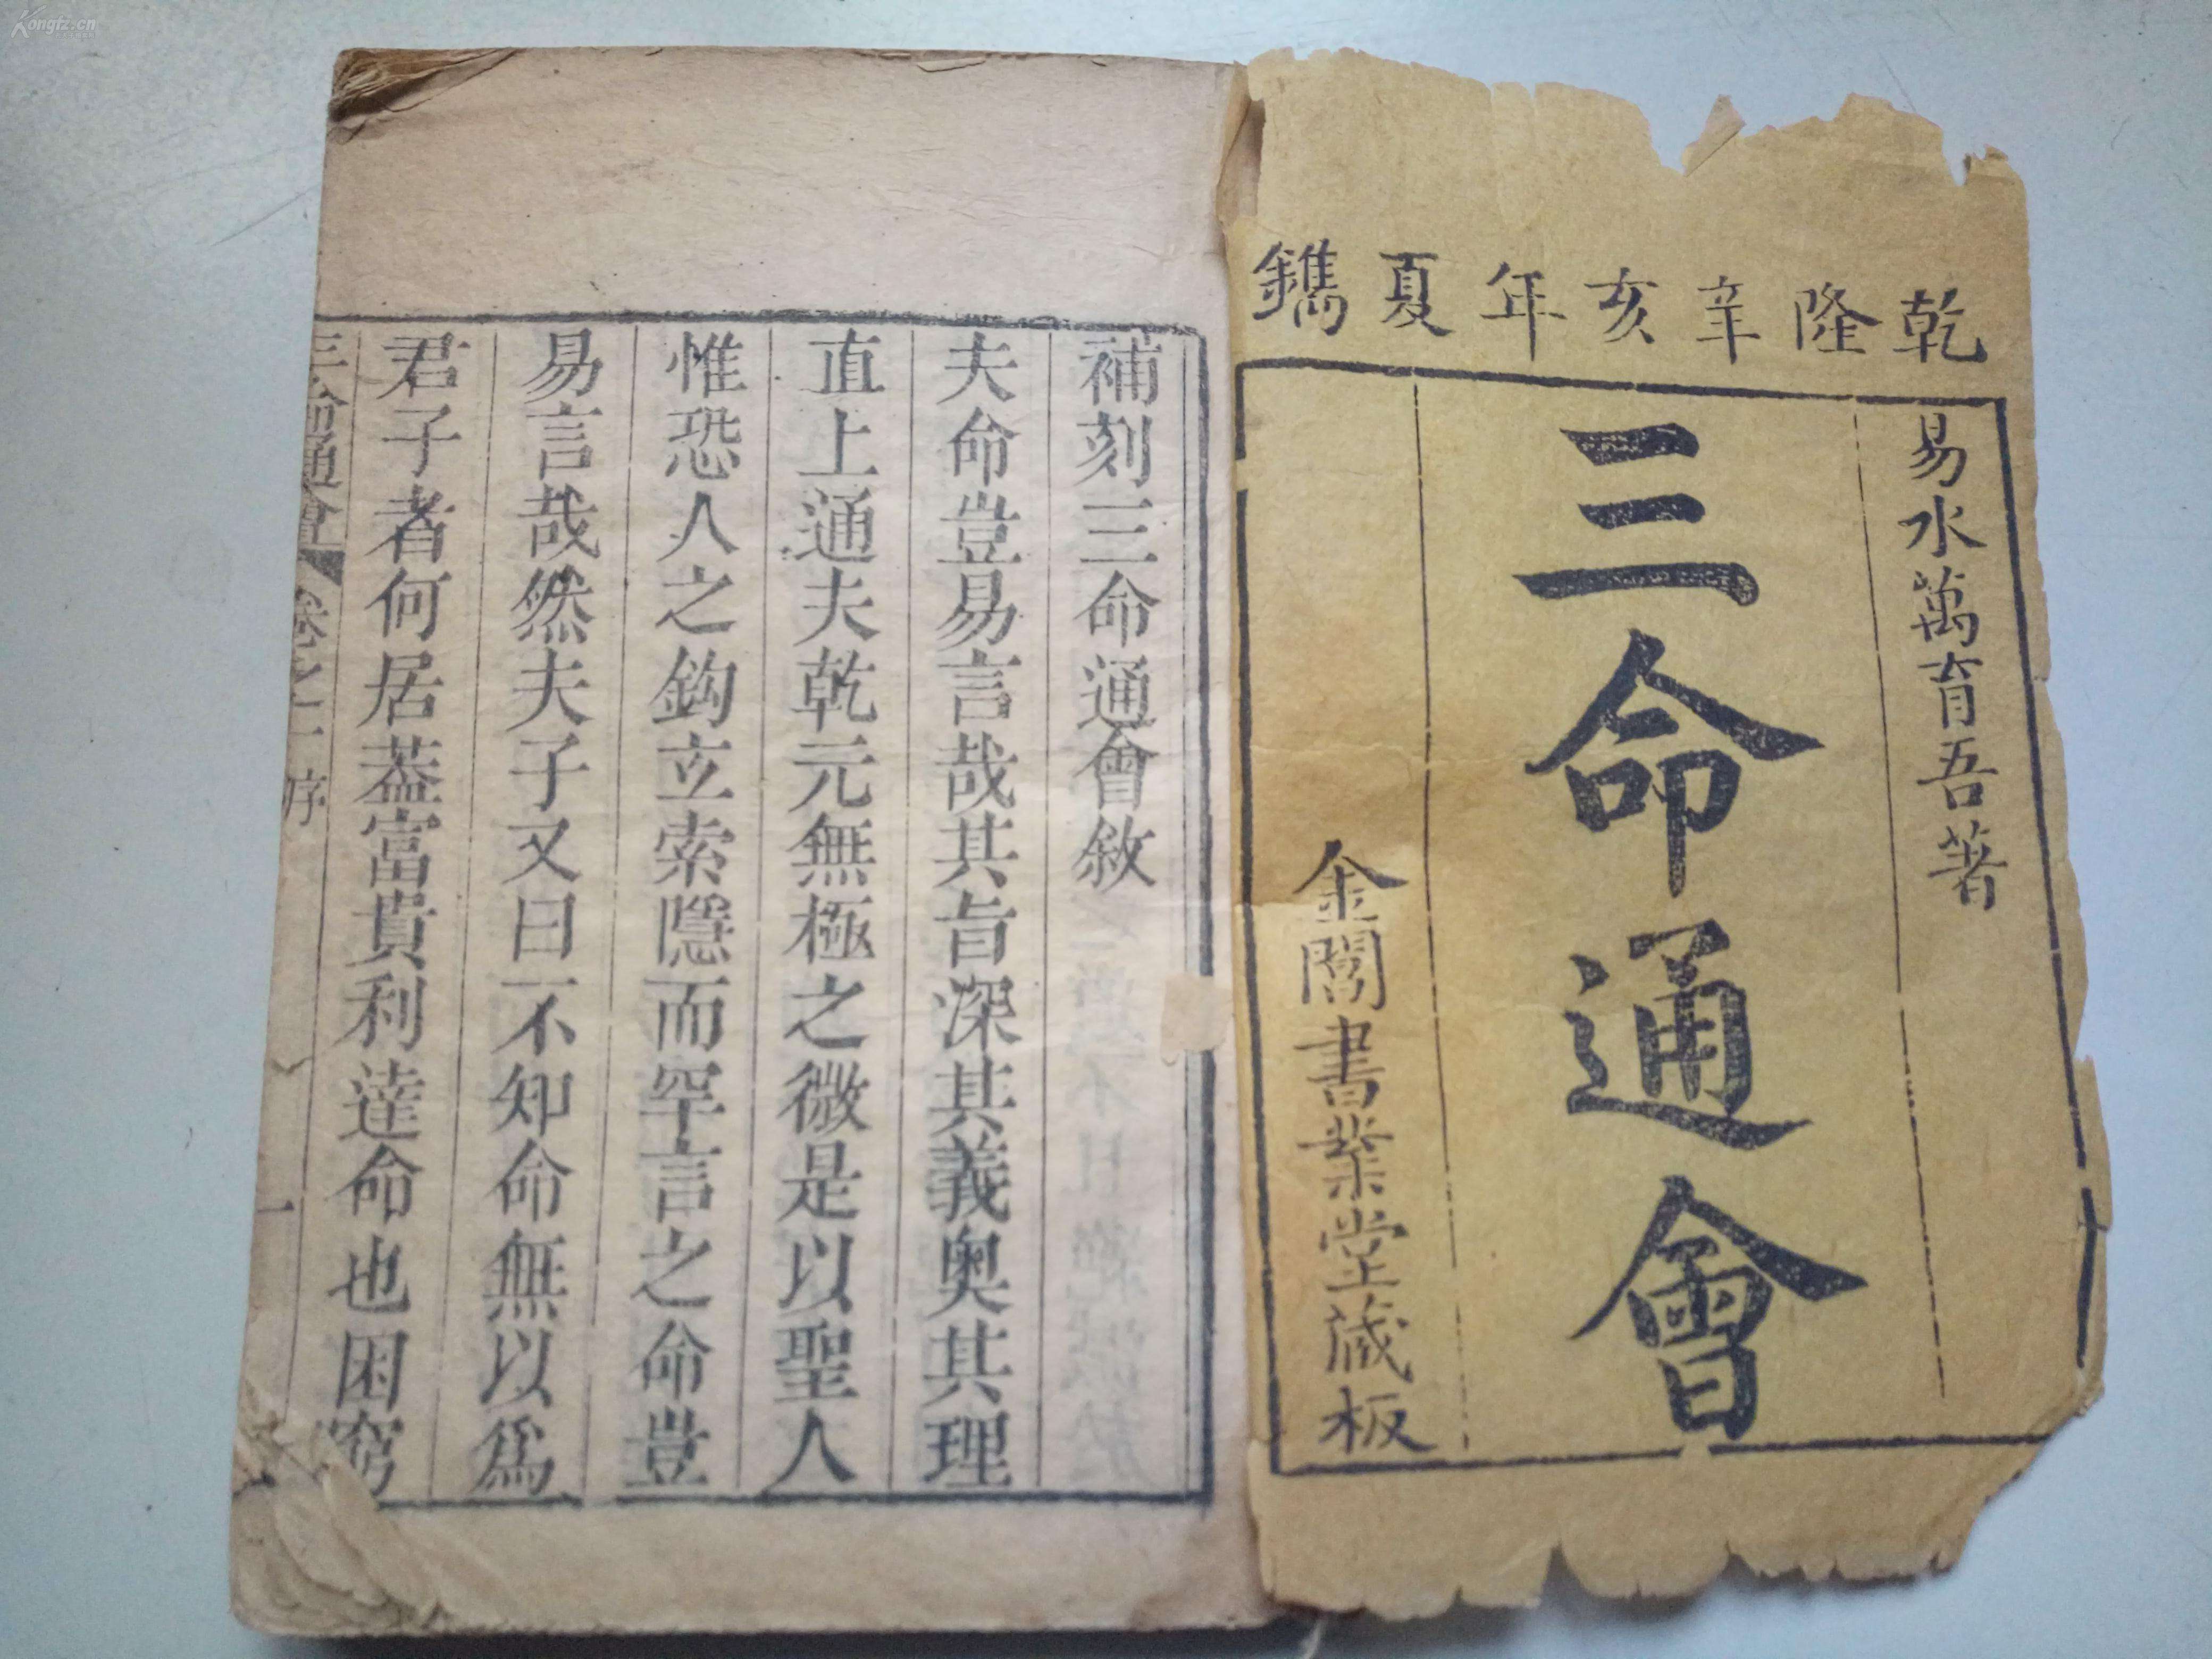 乾隆辛亥年夏鐫
易水萬育吾著
三命通會
金閶書業堂藏板
補刻三命通會敘
夫命豈易言哉其旨深其義奧其理
直上通夫乾元無極之微是以聖人
惟恐人之鈎立索隱而罕言之命豈
易言哉然夫子又曰不知命無以爲
君子者何居葢富貴利達命也困窮
三命通會 卷之一序 一
Kongfz.cn